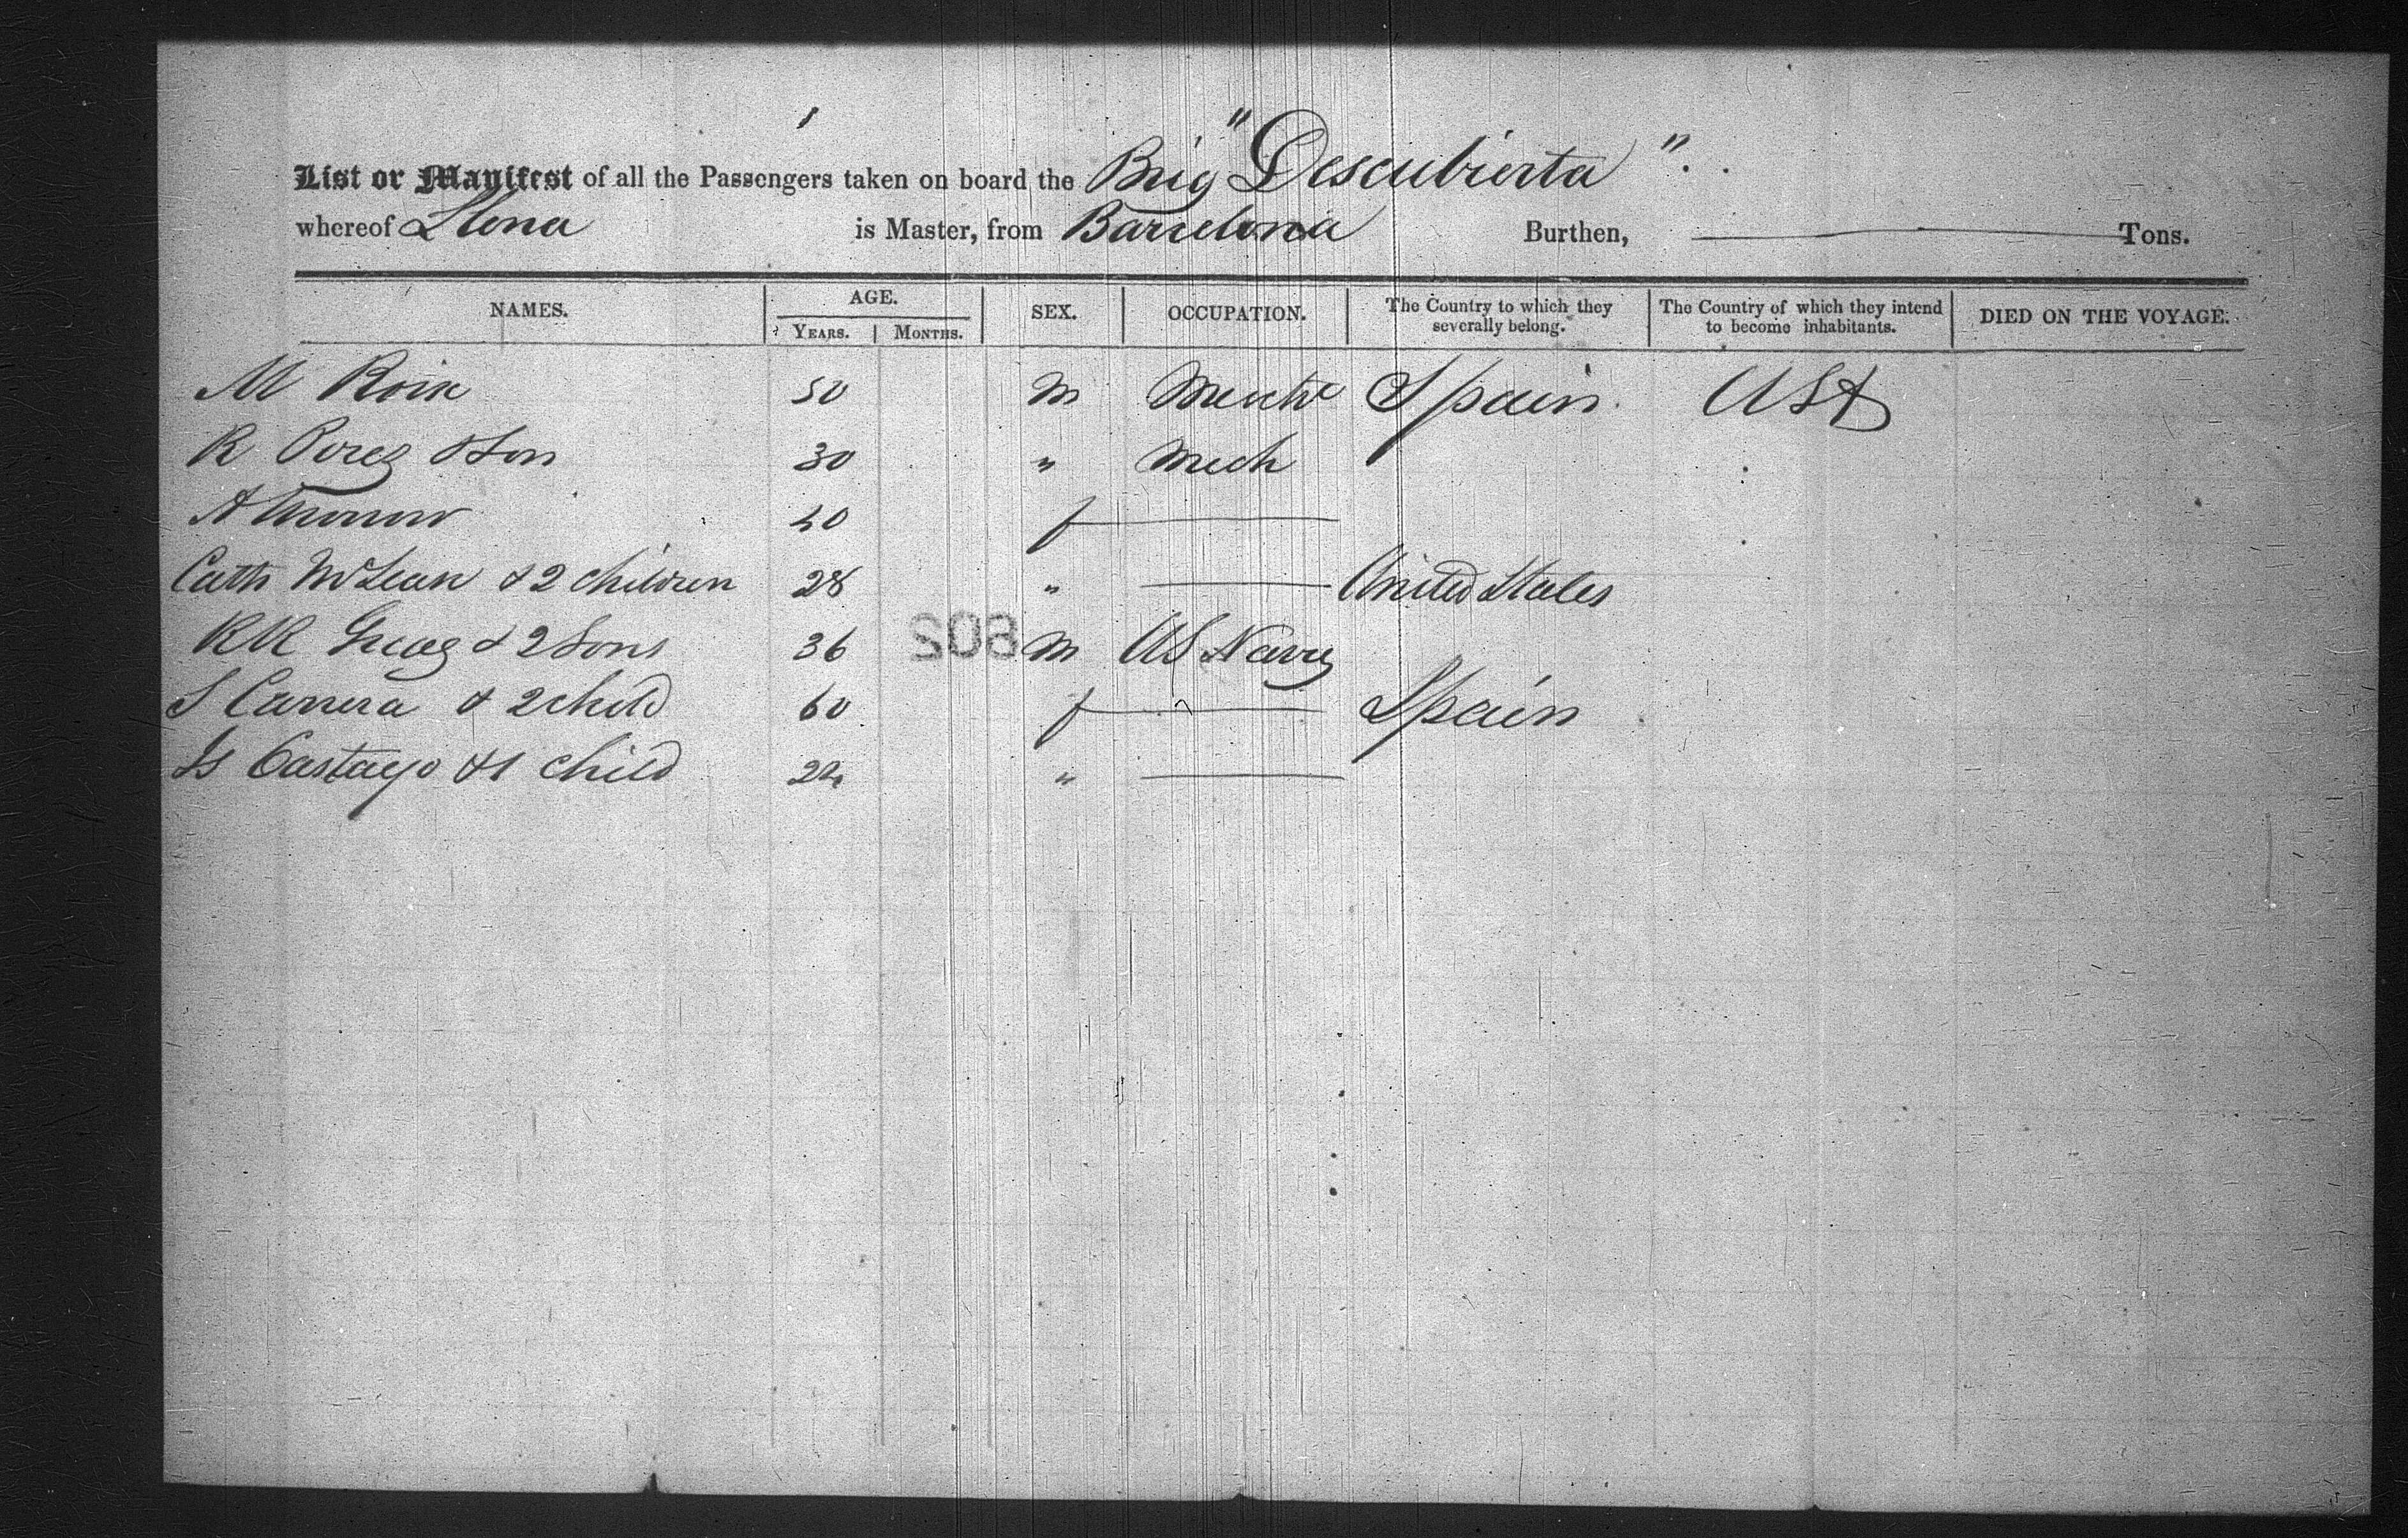 List or Manifest of all the Passengers taken on board the Brig "Descubierta".
whereof Llena is Master, from Barcelona Burthen, Tons.
NAMES. AGE. YEARS. MONTHS. SEX. OCCUPATION. The Country to which they severally belong. The Country of which they intend to become inhabitants. DIED ON THE VOYAGE.
M Roix 50 M Spain USA
R Perez & Son 30 " Mech
A 40 f
Cath McLean & 2 children 28 " United States
RR & 2 Sons 36 M US Navy
S Carrera & 2 child 60 f Spain
Is Castayo & 1 child 22 "
502